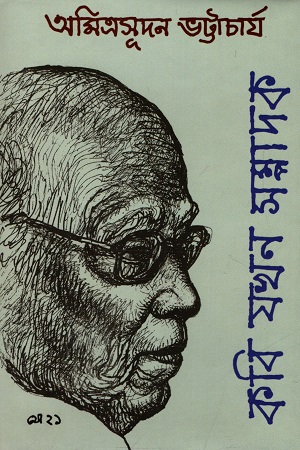 অমিত্রসূদন ভট্টাচার্য
কবি যখন সম্পাদক